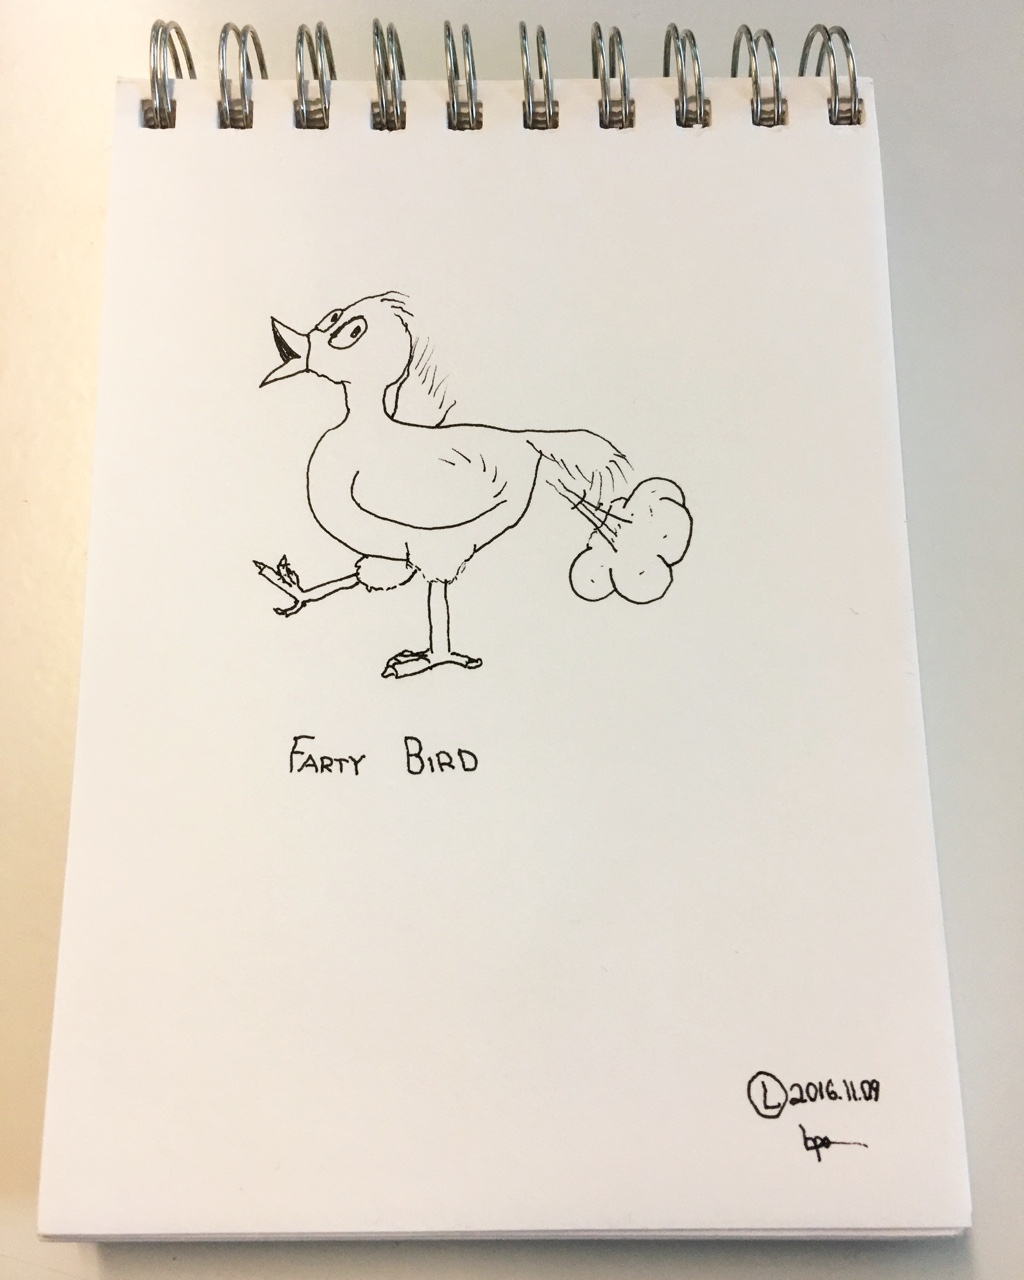 FARTY BIRD
Ⓛ 2016.11.09